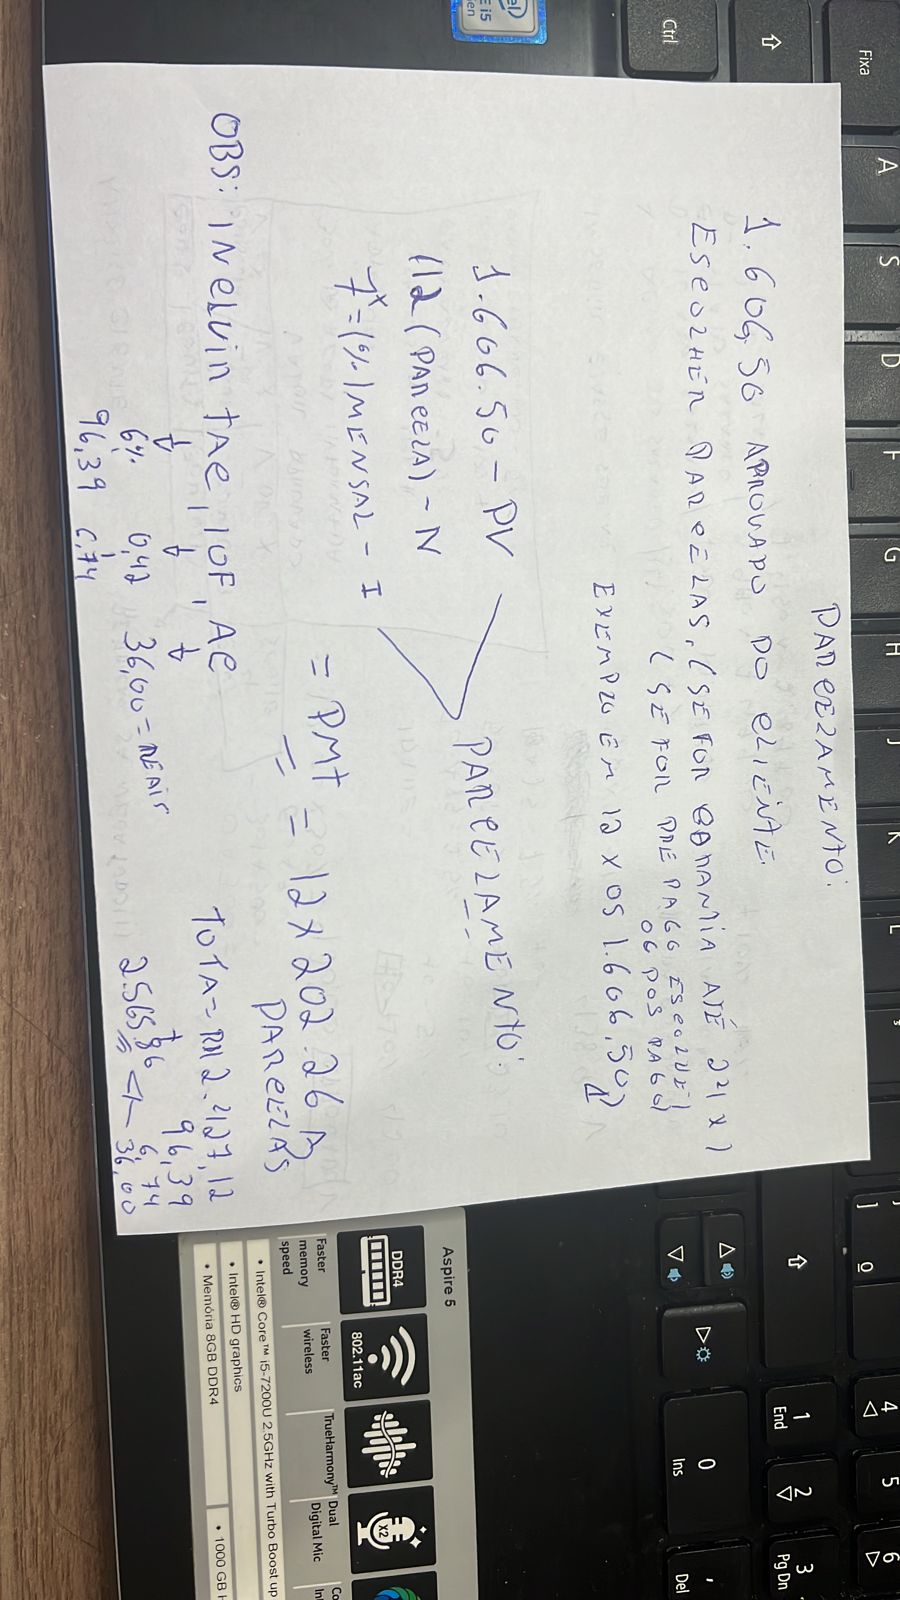 PARCELAMENTO:
1.606,50 APROVADO DO CLIENTE.
ESCOLHER PARCELAS, (SE FOR GARANTIA ATÉ 24X)
(SE FOR PRE PAGO ESCOLHE)
06 POS PAGO
EXEMPLO EM 12 X OS 1.606,50
1.606.50 - PV
12 (PARCELA) - N
7% = (%) MENSAL - I
PARCELAMENTO:
= PMT = 12 X 202.26
PARCELAS
OBS: INCLUIR TAC, IOF, AC
6% 0,42 36,00 = REAIS
96,39 6,74
TOTA = R$ 2.427,12
96,39
6,74
36,00
2.565,86
Fixa
Ctrl
A
S
D
F
G
H
J
K
L
]
º
0
Ins
1
End
2
3
Pg Dn
4
5
6
,
Del
Aspire 5
DDR4
802.11ac
X2
Faster
memory
speed
Faster
wireless
TrueHarmony™
Dual
Digital Mic
• Intel® Core™ i5-7200U 2.5GHz with Turbo Boost up
• Intel® HD graphics
• Memória 8GB DDR4
• 1000 GB H